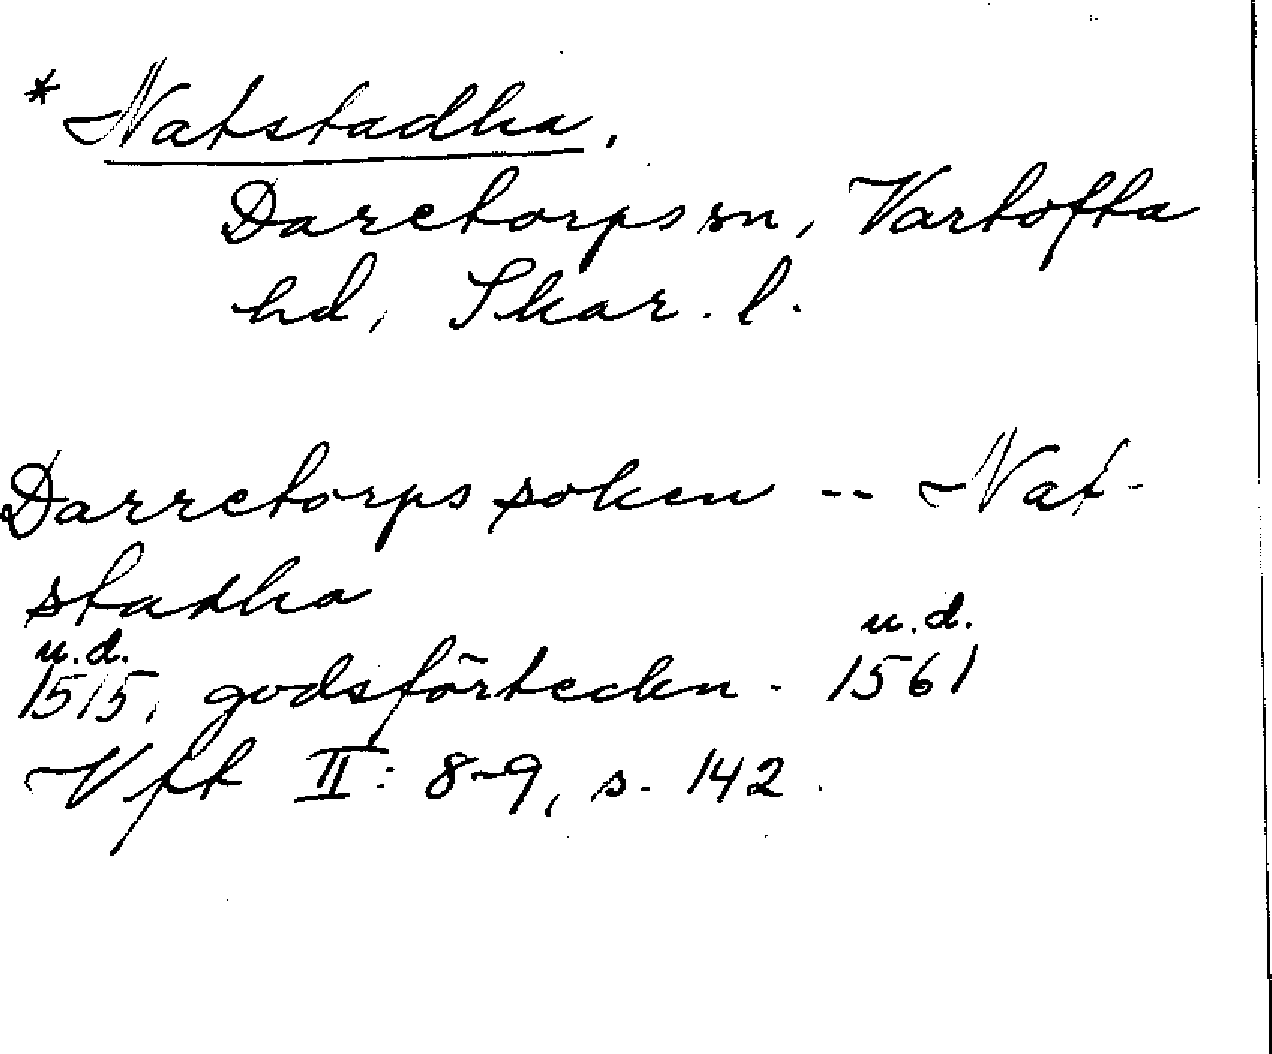 * Natstadha,
Daretorps sn, Vartofta
hd, Skar. l.
Darretorps soken -- Nat-
stadha
u.d. u.d.
1515, godsförteckn. 1561
Vft II: 8-9, s. 142.